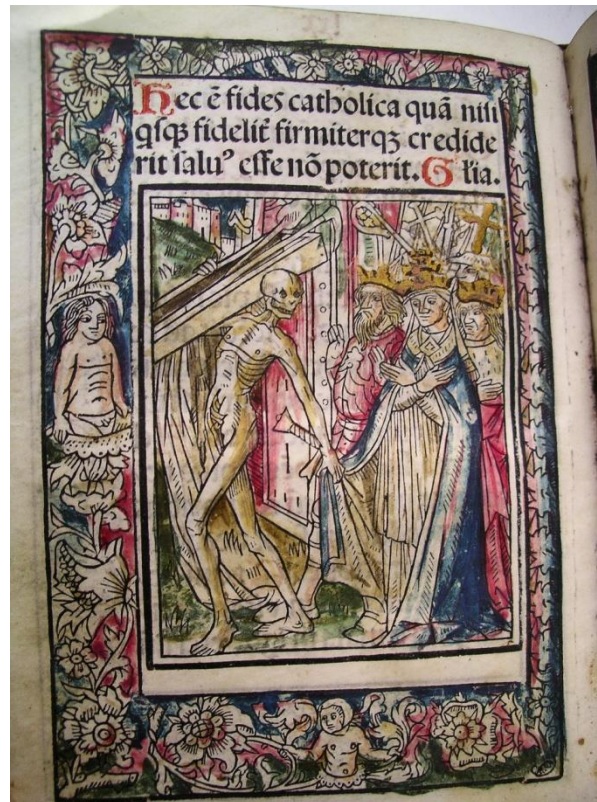 Hec ē fides catholica quā nisi
qſqꝫ fidelit̄ firmiterqꝫ credide
rit ſaluꝰ eſſe nō poterit. Gl̄ia.